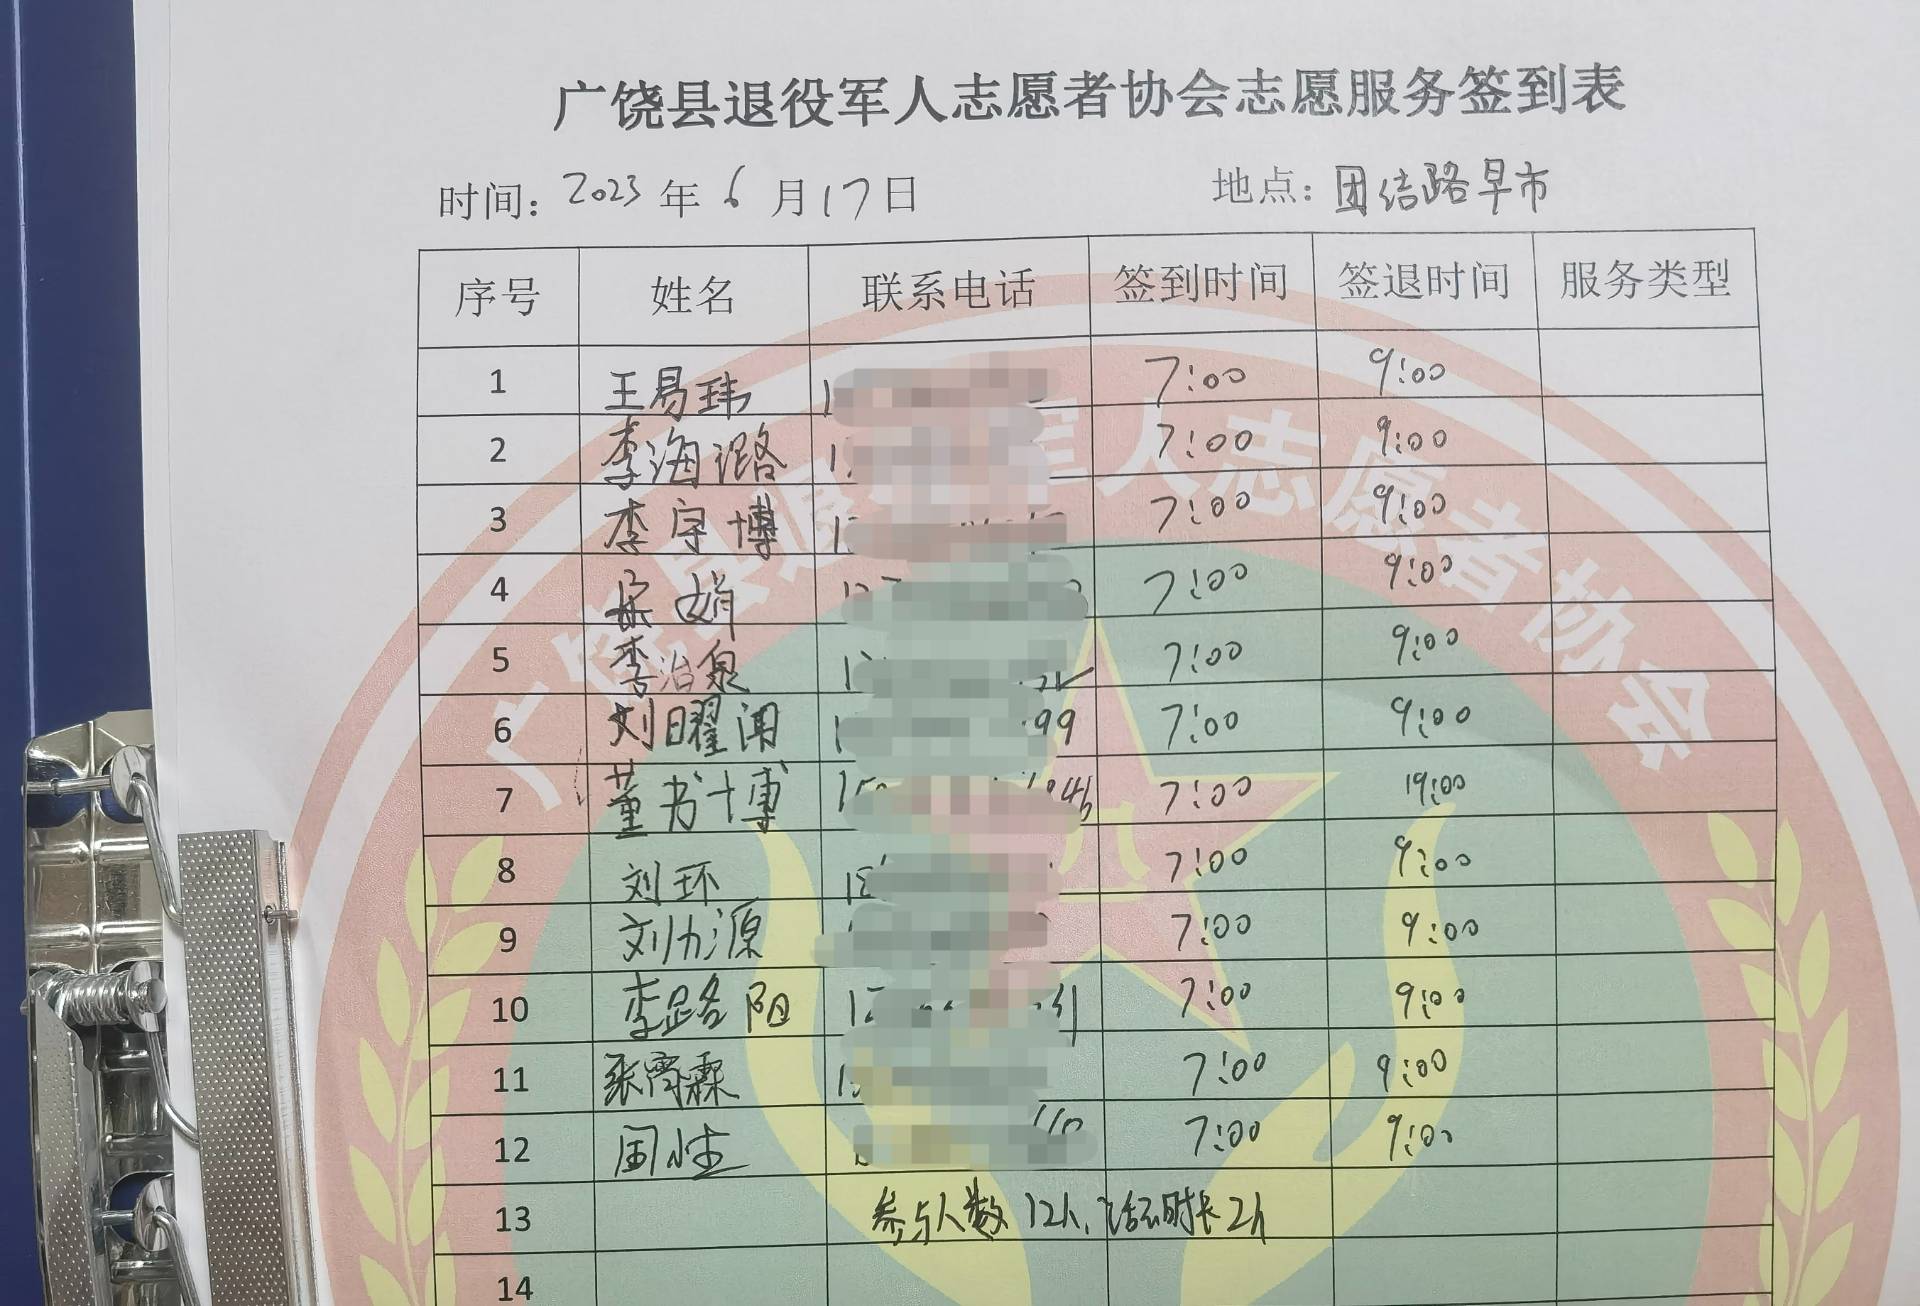 广饶县退役军人志愿者协会志愿服务签到表
时间: 2023 年 6 月 17 日 地点: 团结路早市
序号 姓名 联系电话 签到时间 签退时间 服务类型
1 王易玮 7:00 9:00
2 李海潞 7:00 9:00
3 李宇博 7:00 9:00
4 娟 7:00 9:00
5 李治泉 7:00 9:00
6 刘曜闻 99 7:00 9:00
7 董书博 7:00 19:00
8 刘环 7:00 9:00
9 刘力源 7:00 9:00
10 李路阳 7:00 9:00
11 张霄霖 7:00 9:00
12 周 7:00 9:00
13 参与人数12人, 活动时长2h
14
广饶县退役军人志愿者协会
八一